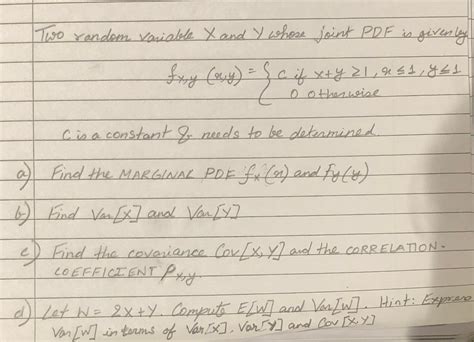 Two random variable X and Y whose joint PDF is given by
fx,y (x,y) = { C if x+y ≥1, x ≤ 1, y ≤ 1
0 otherwise
C is a constant & needs to be determined.
a) Find the MARGINAL PDF fx(x) and fy(y)
b) Find Var[X] and Var[Y]
c) Find the covariance Cov[X,Y] and the CORRELATION-
COEFFICIENT Px,y.
d) Let W = 2X+Y. Compute E[W] and Var[W]. Hint: Express
Var[W] in terms of Var[X], Var[Y] and Cov[X,Y]